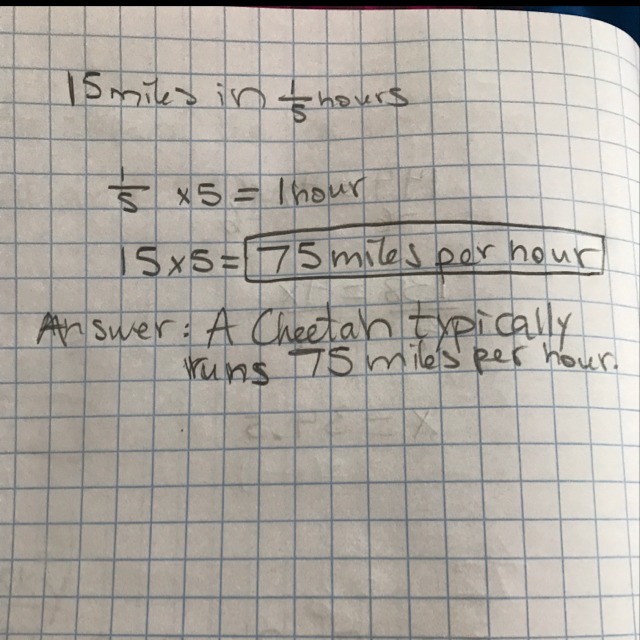 15 miles in 1/5 hours
1/5 x5 = 1 hour
15x5= 75 miles per hour
Answer: A Cheetah typically
runs 75 miles per hour.